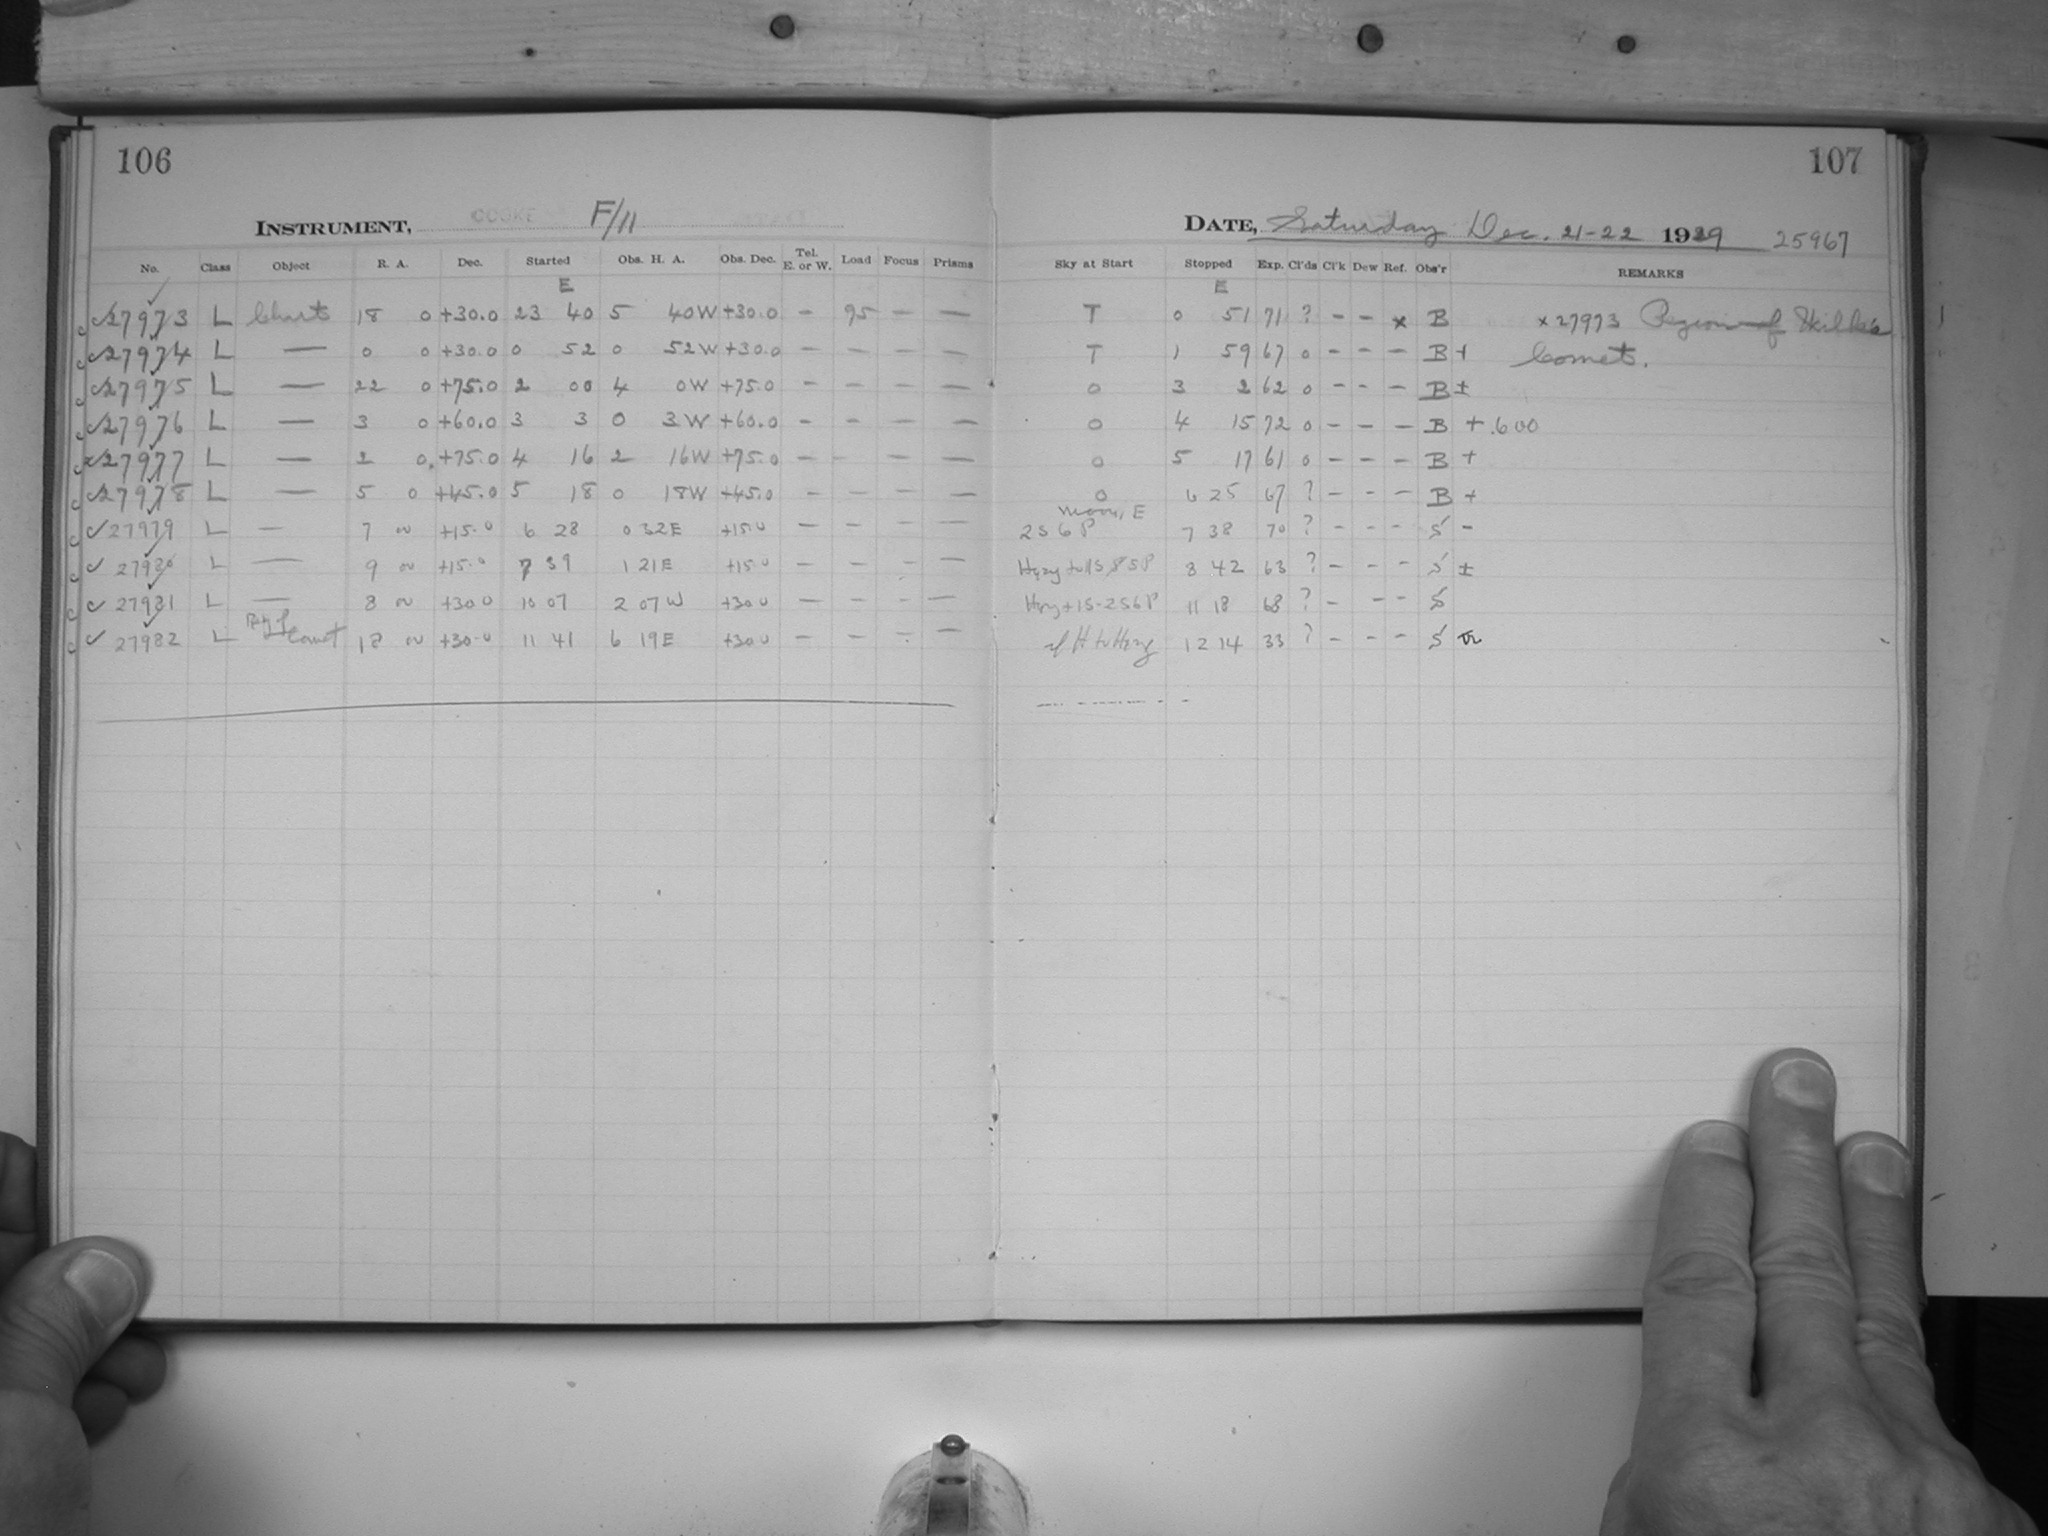 106
107
INSTRUMENT, COOKE F/11
DATE, Saturday Dec. 21-22 1929 25967
No. Class Object R. A. Dec. Started Obs. H. A. Obs. Dec. Tel. E. or W. Load Focus Prisms Sky at Start Stopped Exp. Cl'ds Cl'k Dew Ref. Obs'r REMARKS
E E
27973 L Chart 18 0 +30.0 23 40 5 40W +30.0 - 95 - - T 0 51 71 ? - - x B x 27973 Region of Wilk's
27974 L — 0 0 +30.0 0 52 0 52W +30.0 - - - - T 1 59 67 0 - - - B + Comet.
27975 L — 22 0 +75.0 2 00 4 0W +75.0 - - - - 0 3 2 62 0 - - - B ±
27976 L — 3 0 +60.0 3 3 0 3W +60.0 - - - - 0 4 15 72 0 - - - B + .600
27977 L — 2 0 +75.0 4 16 2 16W +75.0 - - - - 0 5 17 61 0 - - - B +
27978 L — 5 0 +45.0 5 18 0 18W +45.0 - - - - 0 6 25 67 ? - - - B +
Moon, E
27979 L — 7 00 +15.0 6 28 0 32E +15.0 - - - - 2S6P 7 38 70 ? - - - S -
27980 L — 9 00 +15.0 7 39 1 21E +15.0 - - - - 8 42 63 ? - - - S ±
27981 L — 8 00 +30.0 10 07 2 07W +30.0 - - - - Hzy+1S-2S6P 11 18 68 ? - - - S
27982 L Comet 18 00 +30.0 11 41 6 19E +30.0 - - - - 12 14 33 ? - - - S